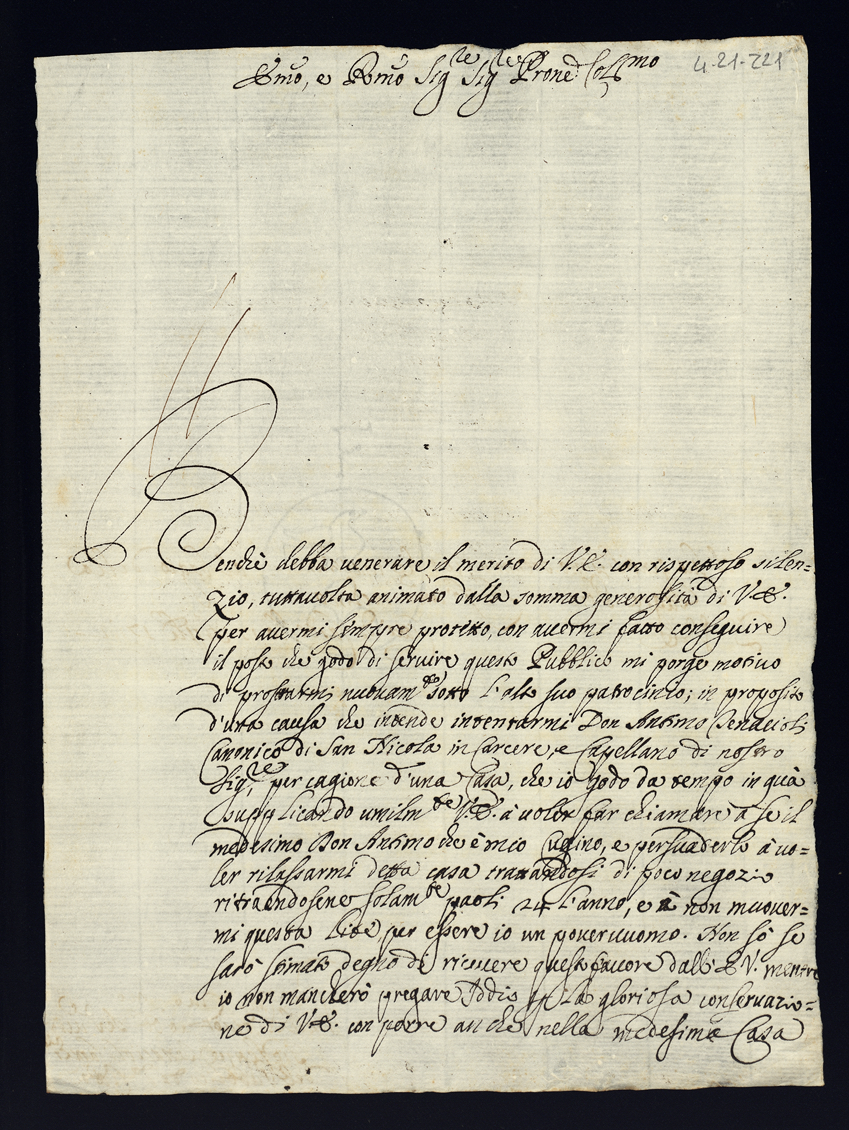 Emo, e Rmo Sigre Sigre Prone Colmo
4-21-221
Benchè debba venerare il merito di V.E. con rispettoso silen=
zio, tuttavolta animato dalla somma generosità di V.E.
per avermi sempre protetto, con avermi fatto conseguire
il posto che godo di servire questo Pubblico mi porge motivo
di prostrarmi nuovamte sotto l'alto suo patrocinio; in proposito
d'una causa che intende intentarmi Don Antimo
Canonico di San Nicola in Carcere, e Capellano di nostro
Sigre, per cagione d'una Casa, che io godo da tempo in quà
supplicando umilmte V.E. à voler far chiamare à se il
medesimo Don Antimo che è mio Cugino, e persuaderlo à vo=
ler rilassarmi detta casa trattandosi di poco negozio
ritraendosene solamte paoli 24 l'anno, e à non muover=
mi questa lite per essere io un pover'uomo. Non sò se
sarò stimato degno di ricevere questo favore dall'E.V. mentre
io non mancherò pregare Iddio p la gloriosa conservazio=
ne di V.E. con porre anche nella medesima Casa